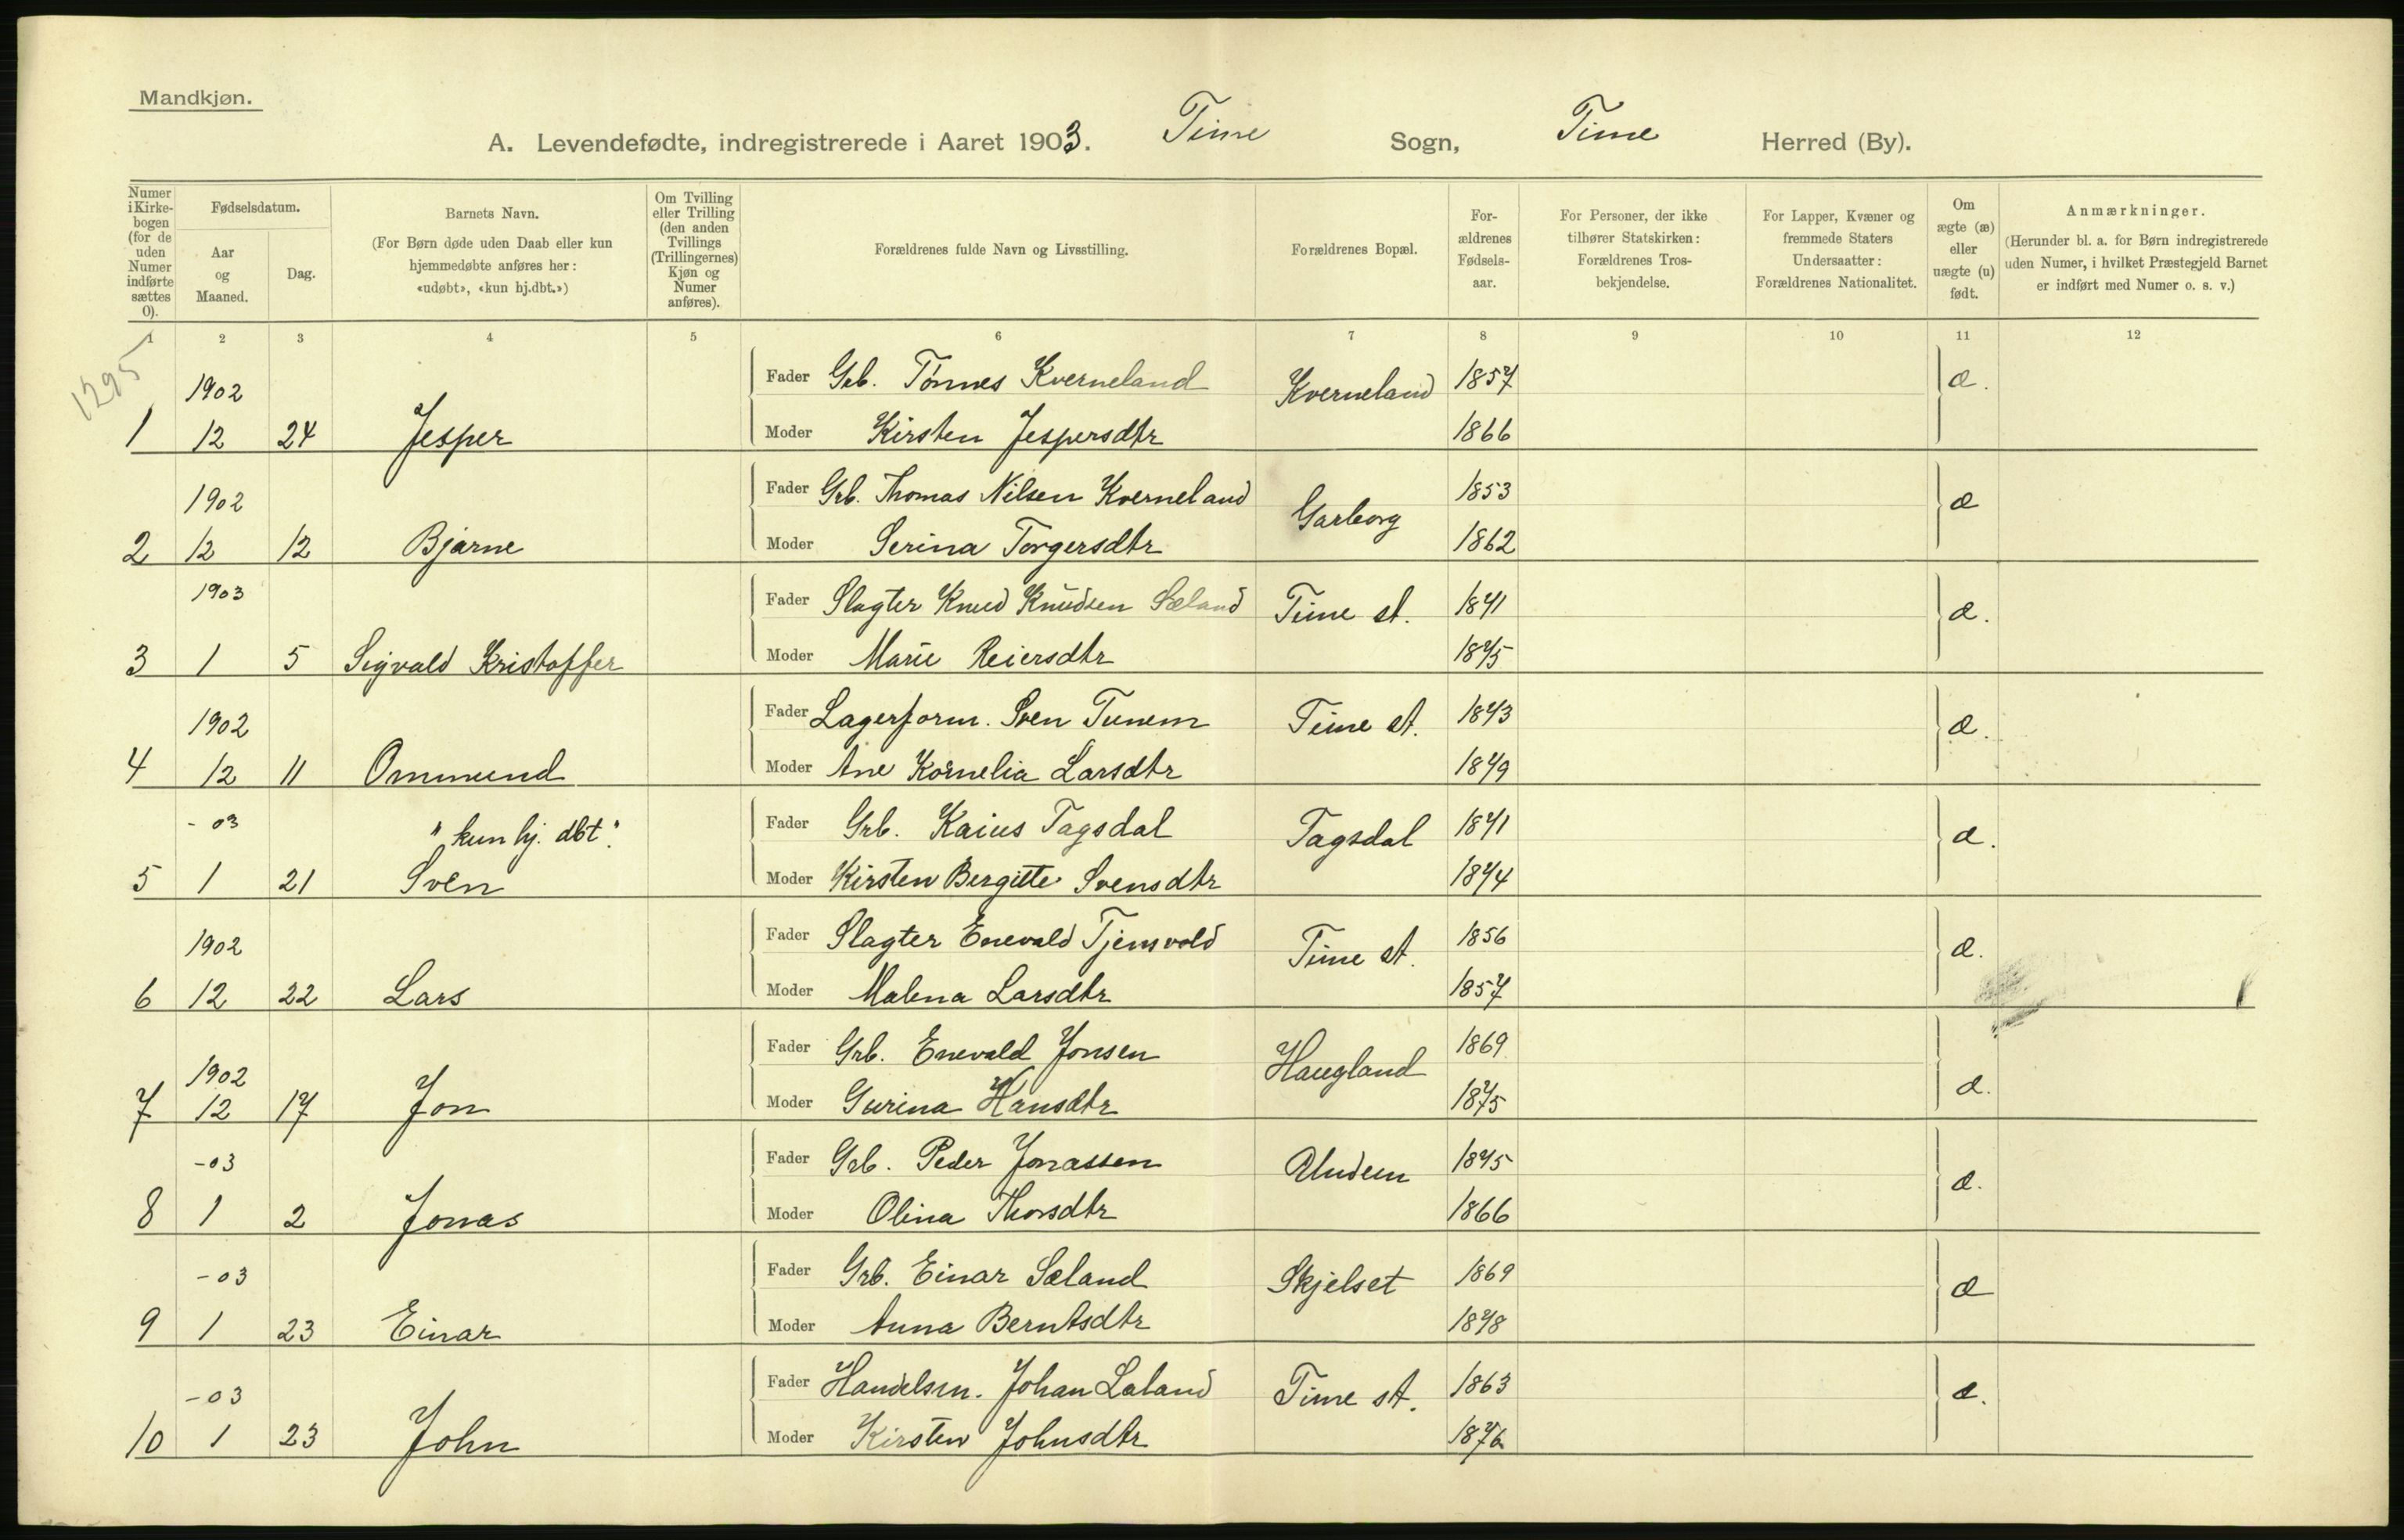 Mandkjøn.
A. Levendefødte, indregistrerede i Aaret 1903. Time Sogn, Time Herred (By).
Numer i Kirkebogen (for de uden Numer indførte sættes 0).
Fødselsdatum.
Aar og Maaned.
Dag.
Barnets Navn.
(For Børn døde uden Daab eller kun hjemmedøbte anføres her: «udøbt», «kun hj.dbt.»)
Om Tvilling eller Trilling (den anden Tvillings (Trillingernes) Kjøn og Numer anføres).
Forældrenes fulde Navn og Livsstilling.
Forældrenes Bopæl.
Forældrenes Fødselsaar.
For Personer, der ikke tilhører Statskirken: Forældrenes Trosbekjendelse.
For Lapper, Kvæner og fremmede Staters Undersaatter: Forældrenes Nationalitet.
Om ægte (æ) eller uægte (u) født.
Anmærkninger.
(Herunder bl. a. for Børn indregistrerede uden Numer, i hvilket Præstegjeld Barnet er indført med Numer o. s. v.)
1 2 3 4 5 6 7 8 9 10 11 12
1295
1902 Fader Grb. Tönnes Kverneland Kverneland 1857 æ.
1 12 24 Jesper Moder Kirsten Jespersdtr 1866
1902 Fader Grb. Thomas Nilsen Kverneland Garborg 1853 æ
2 12 12 Bjarne Moder Serina Torgersdtr 1862
1903 Fader Slagter Knud Knudsen Sæland Time st. 1871 æ.
3 1 5 Sigvald Kristoffer Moder Marie Reiersdtr 1875
1902 Fader Lagerform. Sven Tunem Time st. 1873 æ.
4 12 11 Ommund Moder Ane Kornelia Larsdtr 1879
- 03 "kun hj. dbt". Fader Grb. Kaius Tagsdal Tagsdal 1871 æ.
5 1 21 Sven Moder Kirsten Bergitte Svensdtr 1874
1902 Fader Slagter Enevald Tjensvold Time st. 1856 æ.
6 12 22 Lars Moder Malena Larsdtr 1857
1902 Fader Grb. Enevald Jonsen Haugland 1869 æ.
7 12 17 Jon Moder Gurina Hansdtr 1875
- 03 Fader Grb. Peder Jonassen Undem 1875 æ.
8 1 2 Jonas Moder Olina Thorsdtr 1866
- 03 Fader Grb. Einar Sæland Skjelset 1869 æ
9 1 23 Einar Moder Anna Berntsdtr 1878
- 03 Fader Handelsm. Johan Laland Time st. 1863 æ.
10 1 23 John Moder Kirsten Johnsdtr 1876